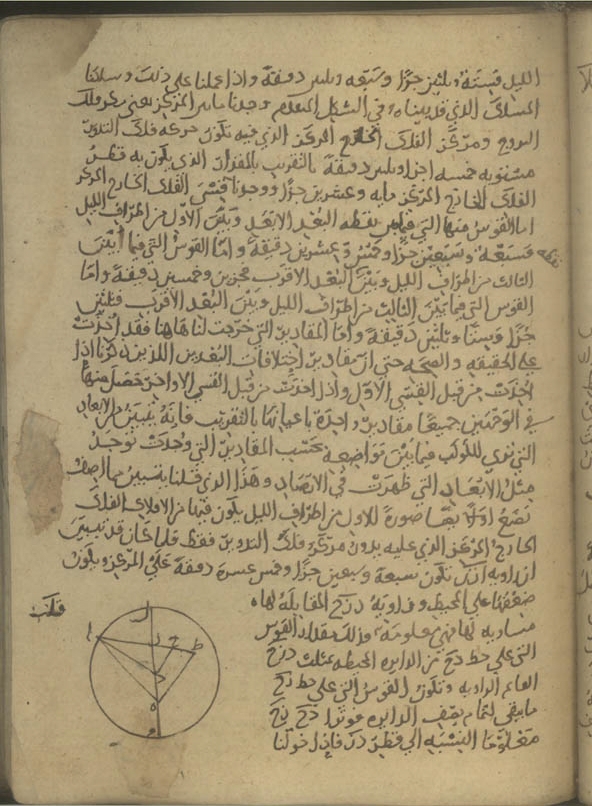 الليل فستة وثلثين جزًا وسبعه وثلثين دقيقة واذا عملنا على ذلك وسلكنا
المسلك الذي قد بيناه في الشكل المتقدم وجدنا ما بين المركزين يعني مركز فلك
البروج ومركز الفلك الخارج المركز الذي فيه تكون حركه فلك التدوير
مستويه خمسه اجزا وثلثين دقيقة بالتقريب بالمقدار الذي يكون به قطر
الفلك الخارج المركز مايه وعشرين جزًا ووجدنا قسي الفلك الخارج المركز
اما القوس منها التي فيما بين نقطه البعد الابعد وبين الاول من اطراف الليل
فسبعة وسبعين جزًا وخمس وعشرين دقيقة واما القوس التي فيما بين
الثالث من اطراف الليل وبين البعد الاقرب فجزين وخمسين دقيقة واما
القوس التي فيما بين الثالث من اطراف الليل وبين البعد الاقرب فثلثين
جزًا وستًا وثلثين دقيقة واما المقادير التي خرجت لنا هاهنا فقد اخذت
على الحقيقه والصحه حتى ان مقادير اختلافات البعدين اللذين ذكرنا اذا
اخذت من قبل القسي الاول واذا اخذت من قبل القسي الاواخر حصل منها
في الوجهين جميعًا مقادير واحدة باعيانها بالتقريب فانه يتبين من الابعاد
التي ترى للكوكب فيما بين مواضعه بحسب المقادير التي وجدت توجد
مثل الابعاد التي ظهرت في الارصاد وهذا الذي قلنا يتبين مما اصف
نضع اولًا صورة للاول من اطراف الليل يكون فيها من الافلاك الفلك
الخارج المركز الذي عليه يدور مركز فلك التدوير فقط فلما كان قد تبين
ان زاويه تكون سبعة وسبعين جزًا وخمس عشرة دقيقة على المركز ويكون
ضعفها على المحيط وزاوية درح المقابله لها
مساويه لها فهي معلومة وذلك مقدار القوس
التي على خط دح من الدايره المحيطه بمثلث درح
القايم الزاويه وتكون القوس التي على خط رح
ما يبقى لتمام نصف الدايره فوترا دح رح
معلومًا النسبه الى قطر در فاذا حولنا